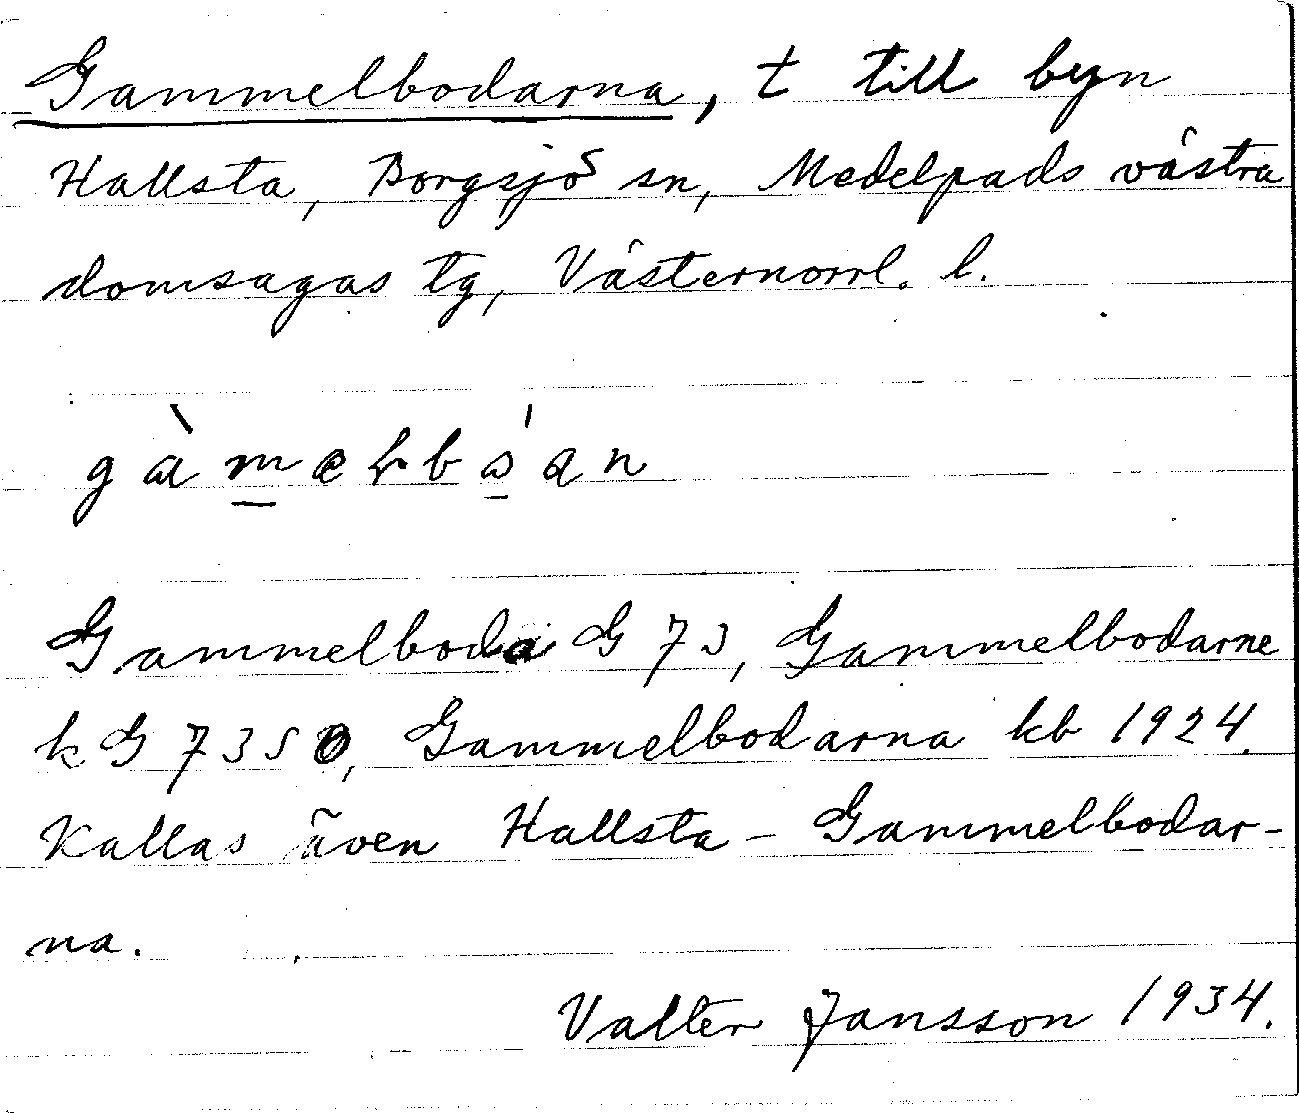 Gammelbodarna, t till byn
Hallsta, Borgsjö sn, Medelpads västra
domsagas tg, Västernorrl. l.
Gammelboda G 73, Gammelbodarne
k G 7350, Gammelbodarna kb 1924.
Kallas även Hallsta - Gammelbodar-
na.
Valter Jansson 1934.